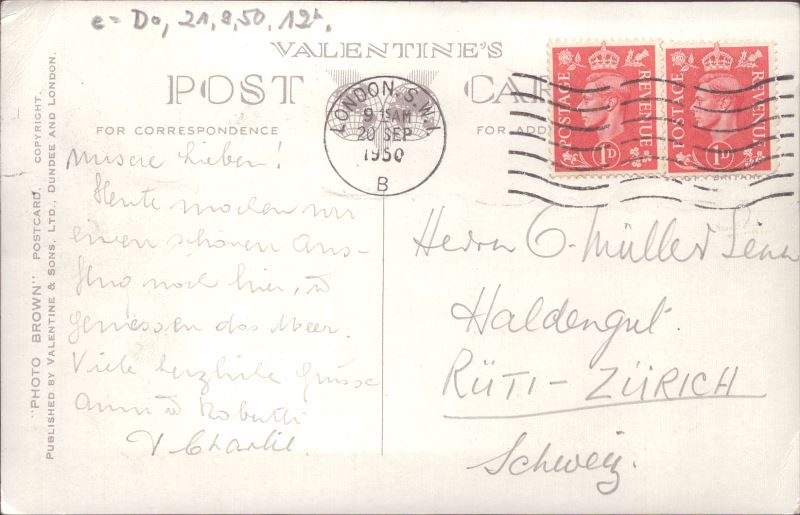 e = Do, 21.9.50. 12h.
VALENTINE'S
POST CARD
FOR CORRESPONDENCE
FOR ADD
LONDON S.W.1
9 15AM
20 SEP
1950
B
POSTAGE REVENUE
1D
POSTAGE REVENUE
1D
"PHOTO BROWN" POSTCARD. COPYRIGHT.
PUBLISHED BY VALENTINE & SONS, LTD., DUNDEE AND LONDON.
Unsere Lieben!
Heute machen wir
einen schönen Aus-
flug nach hier, u
geniessen das Meer.
Viele herzliche Grüsse
Anni u
& Charlie.
Herrn O. Müller Senn
Haldengut.
RÜTI-ZÜRICH
Schweiz.